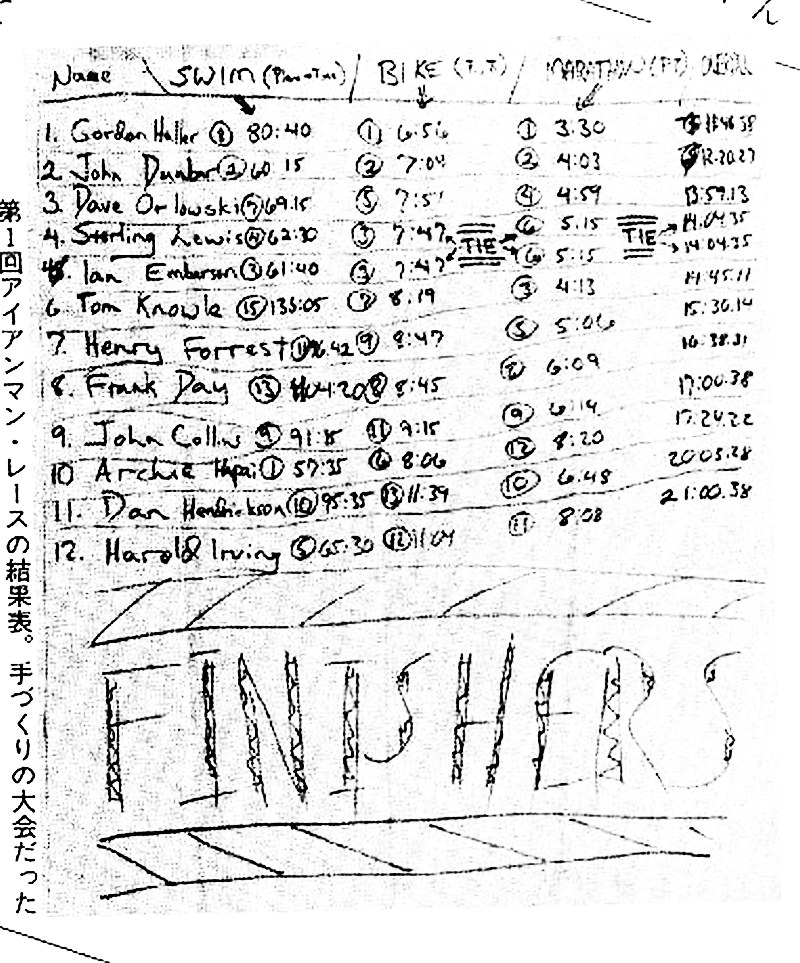 Name SWIM (Place + Time) BIKE (P,T) MARATHON (P,T) OVERALL
1. Gordon Haller ⑧ 80:40 ① 6:56 ① 3:30 11:46.58
2. John Dunbar ② 60:15 ② 7:04 ② 4:03 12:20.27
3. Dave Orlowski ⑦ 69:15 ⑤ 7:51 ④ 4:59 13:59.13
4. Sterling Lewis ④ 62:30 ③ 7:47 TIE ⑥ 5:15 TIE 14:04.35
4. Ian Emberson ③ 61:40 ③ 7:47 ⑥ 5:15 14:04.35
6 Tom Knowle ⑮ 135:05 ⑦ 8:19 ③ 4:13 14:45.11
7. Henry Forrest 96.42 ⑨ 8:47 ⑤ 5:06 15:30.14
8. Frank Day ⑬ 104:20 ⑧ 8:45 ⑧ 6:09 16:38.31
9. John Collins ⑨ 91:15 ⑪ 9:15 ⑨ 6:14 17:00.38
10 Archie Hapai ① 57:35 ⑥ 8:06 ⑫ 8:20 17:24.22
11. Dan Hendrickson ⑩ 95:35 ⑬ 11:39 ⑩ 6:48 20:03.28
12. Harold Irving ⑤ 65:30 ⑫ 11:04 ⑪ 8:08 21:00.38
FINISHERS
第1回アイアンマン・レースの結果表。手づくりの大会だった